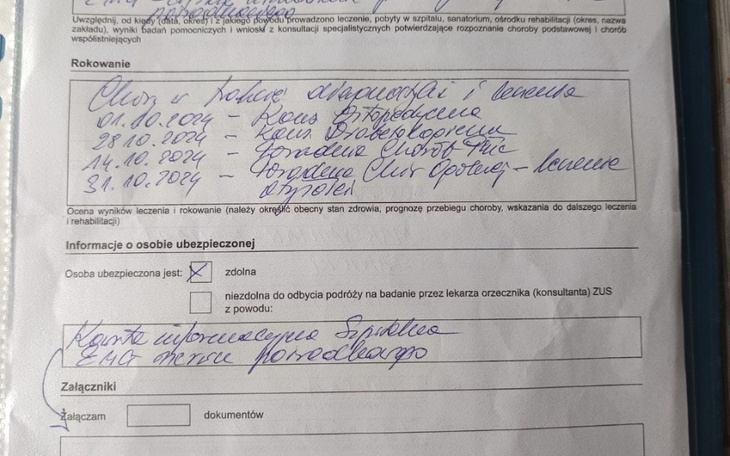 pośrodkowego
Uwzględnij, od kiedy (data, okres) i z jakiego powodu prowadzono leczenie, pobyty w szpitalu, sanatorium, ośrodku rehabilitacji (okres, nazwa
zakładu), wyniki badań pomocniczych i wnioski z konsultacji specjalistycznych potwierdzające rozpoznanie choroby podstawowej i chorób
współistniejących
Rokowanie
Chory w trakcie diagnostyki i leczenia
01.10.2024 - Kons Ortopedyczna
28.10.2024 - Kons
14.10.2024 - Poradnia Chorób Płuc
31.10.2024 - Poradnia Chir Ogólnej - leczenie
Ocena wyników leczenia i rokowanie (należy określić obecny stan zdrowia, prognozę przebiegu choroby, wskazania do dalszego leczenia
i rehabilitacji)
Informacje o osobie ubezpieczonej
Osoba ubezpieczona jest: X zdolna
niezdolna do odbycia podróży na badanie przez lekarza orzecznika (konsultanta) ZUS
z powodu:
Karta informacyjna Szpitalna
EMG nerwu pośrodkowego
Załączniki
Załączam dokumentów